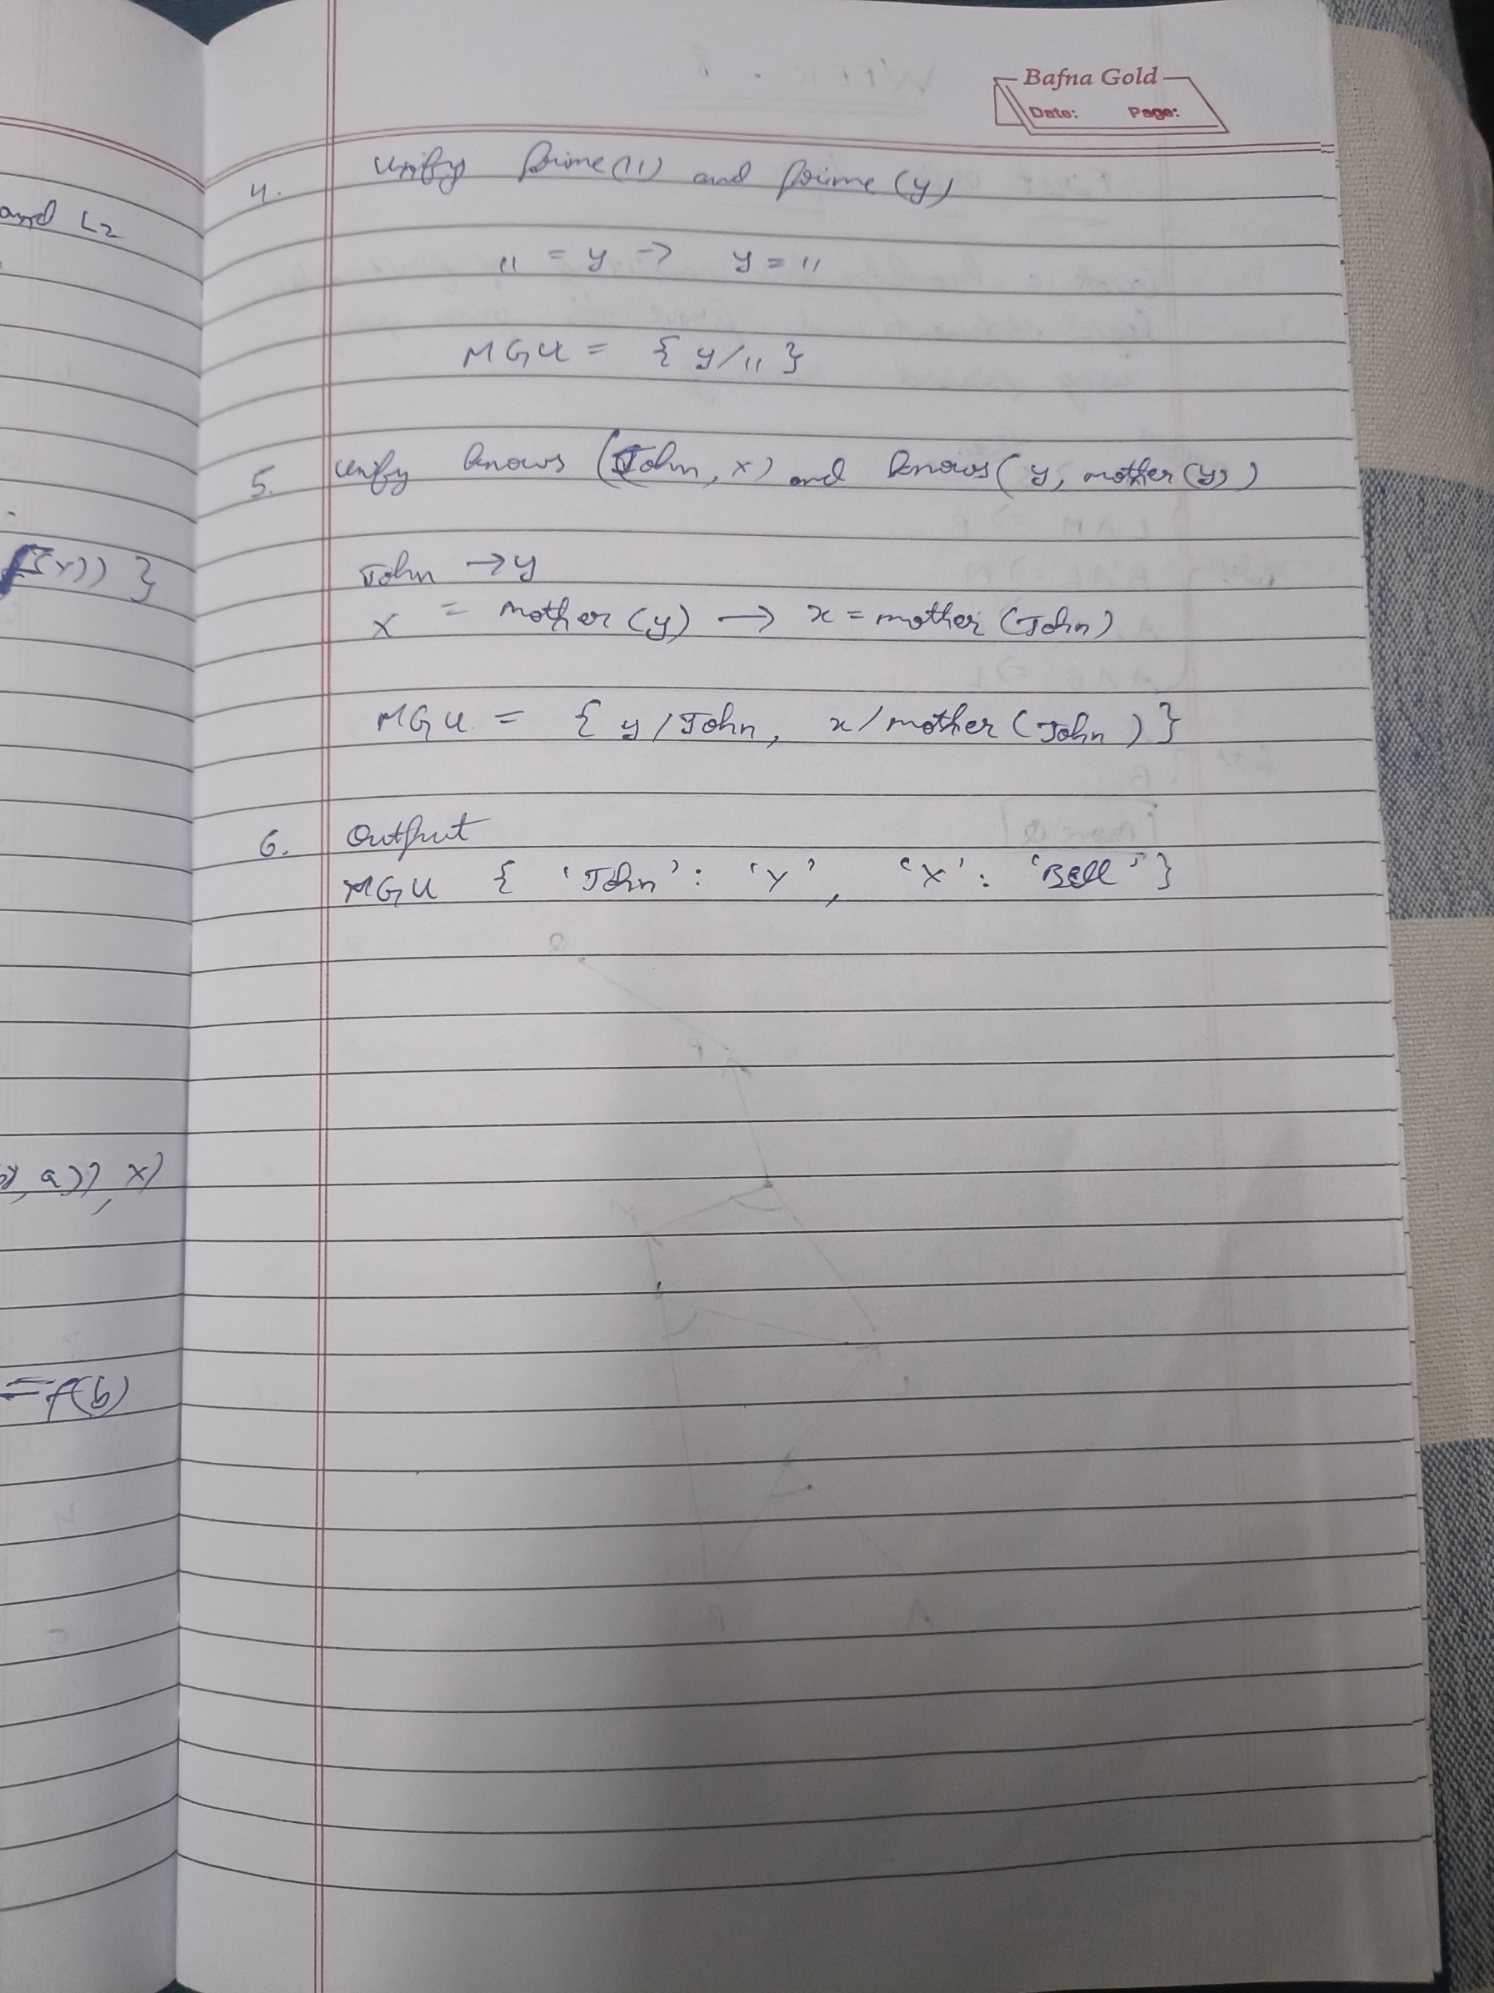 and L2
f(y)) }
, a)), x)
= f(b)
Bafna Gold
Date: Page:
4. Unify prime(11) and prime(y)
11 = y -> y = 11
MGU = { y/11 }
5. Unify knows (John, x) and knows( y, mother(y))
John -> y
x = mother(y) -> x = mother (John)
MGU = { y/John, x/mother(John) }
6. Output
MGU { 'John': 'Y', 'X': 'Bell' }